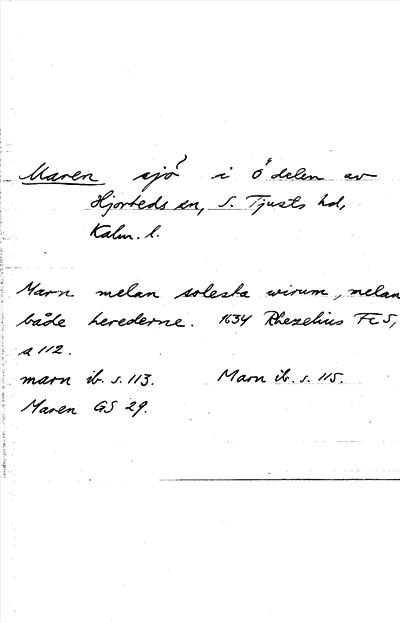 Maren sjö i ö delen av
Hjorteds sn, S. Tjusts hd,
Kalm. l.
Marn melan solesta wirum, melan
både herederne. 1634 Rhezelius Fc5,
s 112.
marn ib. s. 113. Marn ib. s. 115.
Maren GS 29.